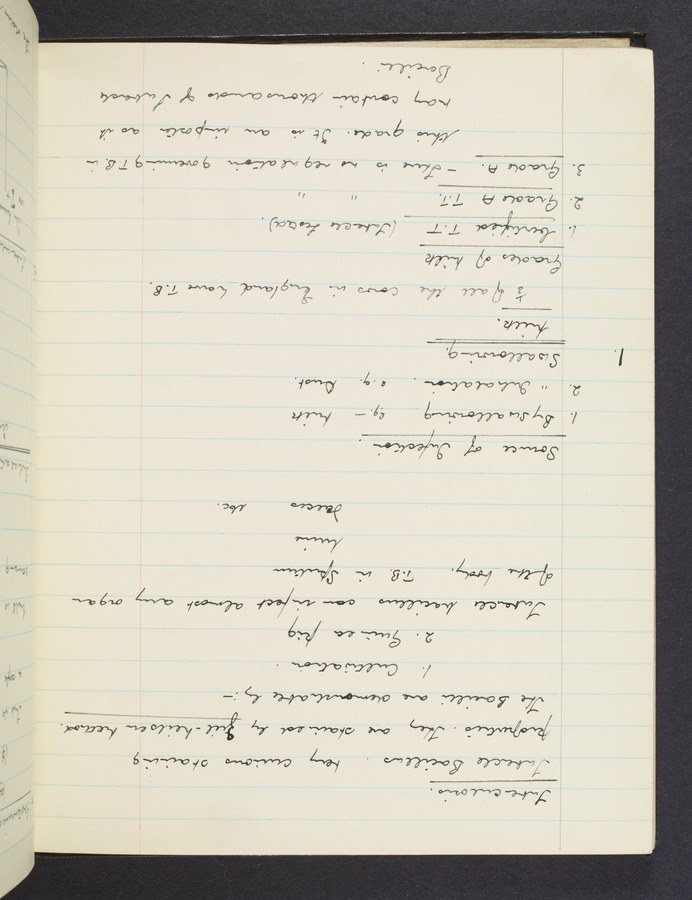 Tuberculosis.
Tubercle Bacillus. Very curious staining
properties. They are stained by Ziel-Neilsen method.
The Bacilli are demonstrable by :-
1. Cultivation.
2. Guinea pig
Tubercle bacillus can infect almost any organ
of the body. T.B. in Sputum
Urine
Faeces etc.
Source of Infection.
1. By swallowing eg - milk
2. " Inhalation. e.g. Dust.
1. Swallowing.
Milk.
⅓ of all the cows in England have T.B.
Grades of Milk
1. Certified T.T. (Tubercle tested).
2. Grade A T.T. " "
3. Grade A. - There is no regulation governing T.B. in
this grade. It is an imposter as it
may contain thousands of Tubercle
Bacilli.